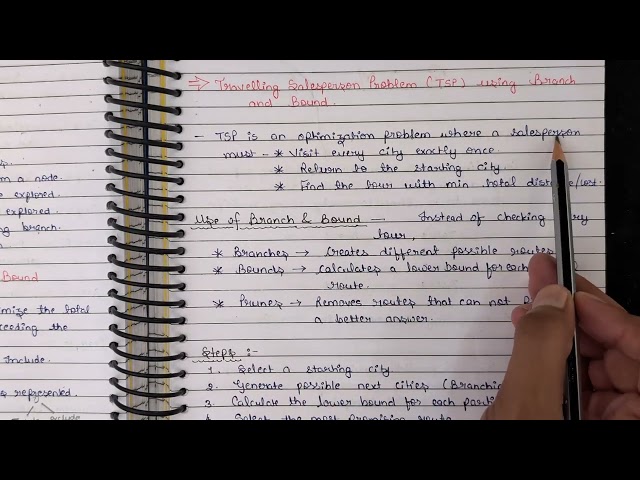 s.
m a node.
e explored.
explored.
ng branch.
Bound
mize the total
ceeding the
Include.
s represented.
exclude
⇒ Travelling Salesperson Problem (TSP) using Branch
and Bound.
- TSP is an optimization problem where a salesperson
must - * Visit every city exactly once.
* Return to the starting city
* Find the tour with min. total distance/cost.
Use of Branch & Bound — Instead of checking ry
tour,
* Branches → Creates different possible routes
* Bounds → Calculates a lower bound for each
route.
* Prunes → Removes routes that can not
a better answer.
Steps :-
1. Select a starting city.
2. Generate possible next cities (Branchin
3. Calculate the lower bound for each parti
4. Select the most promising route